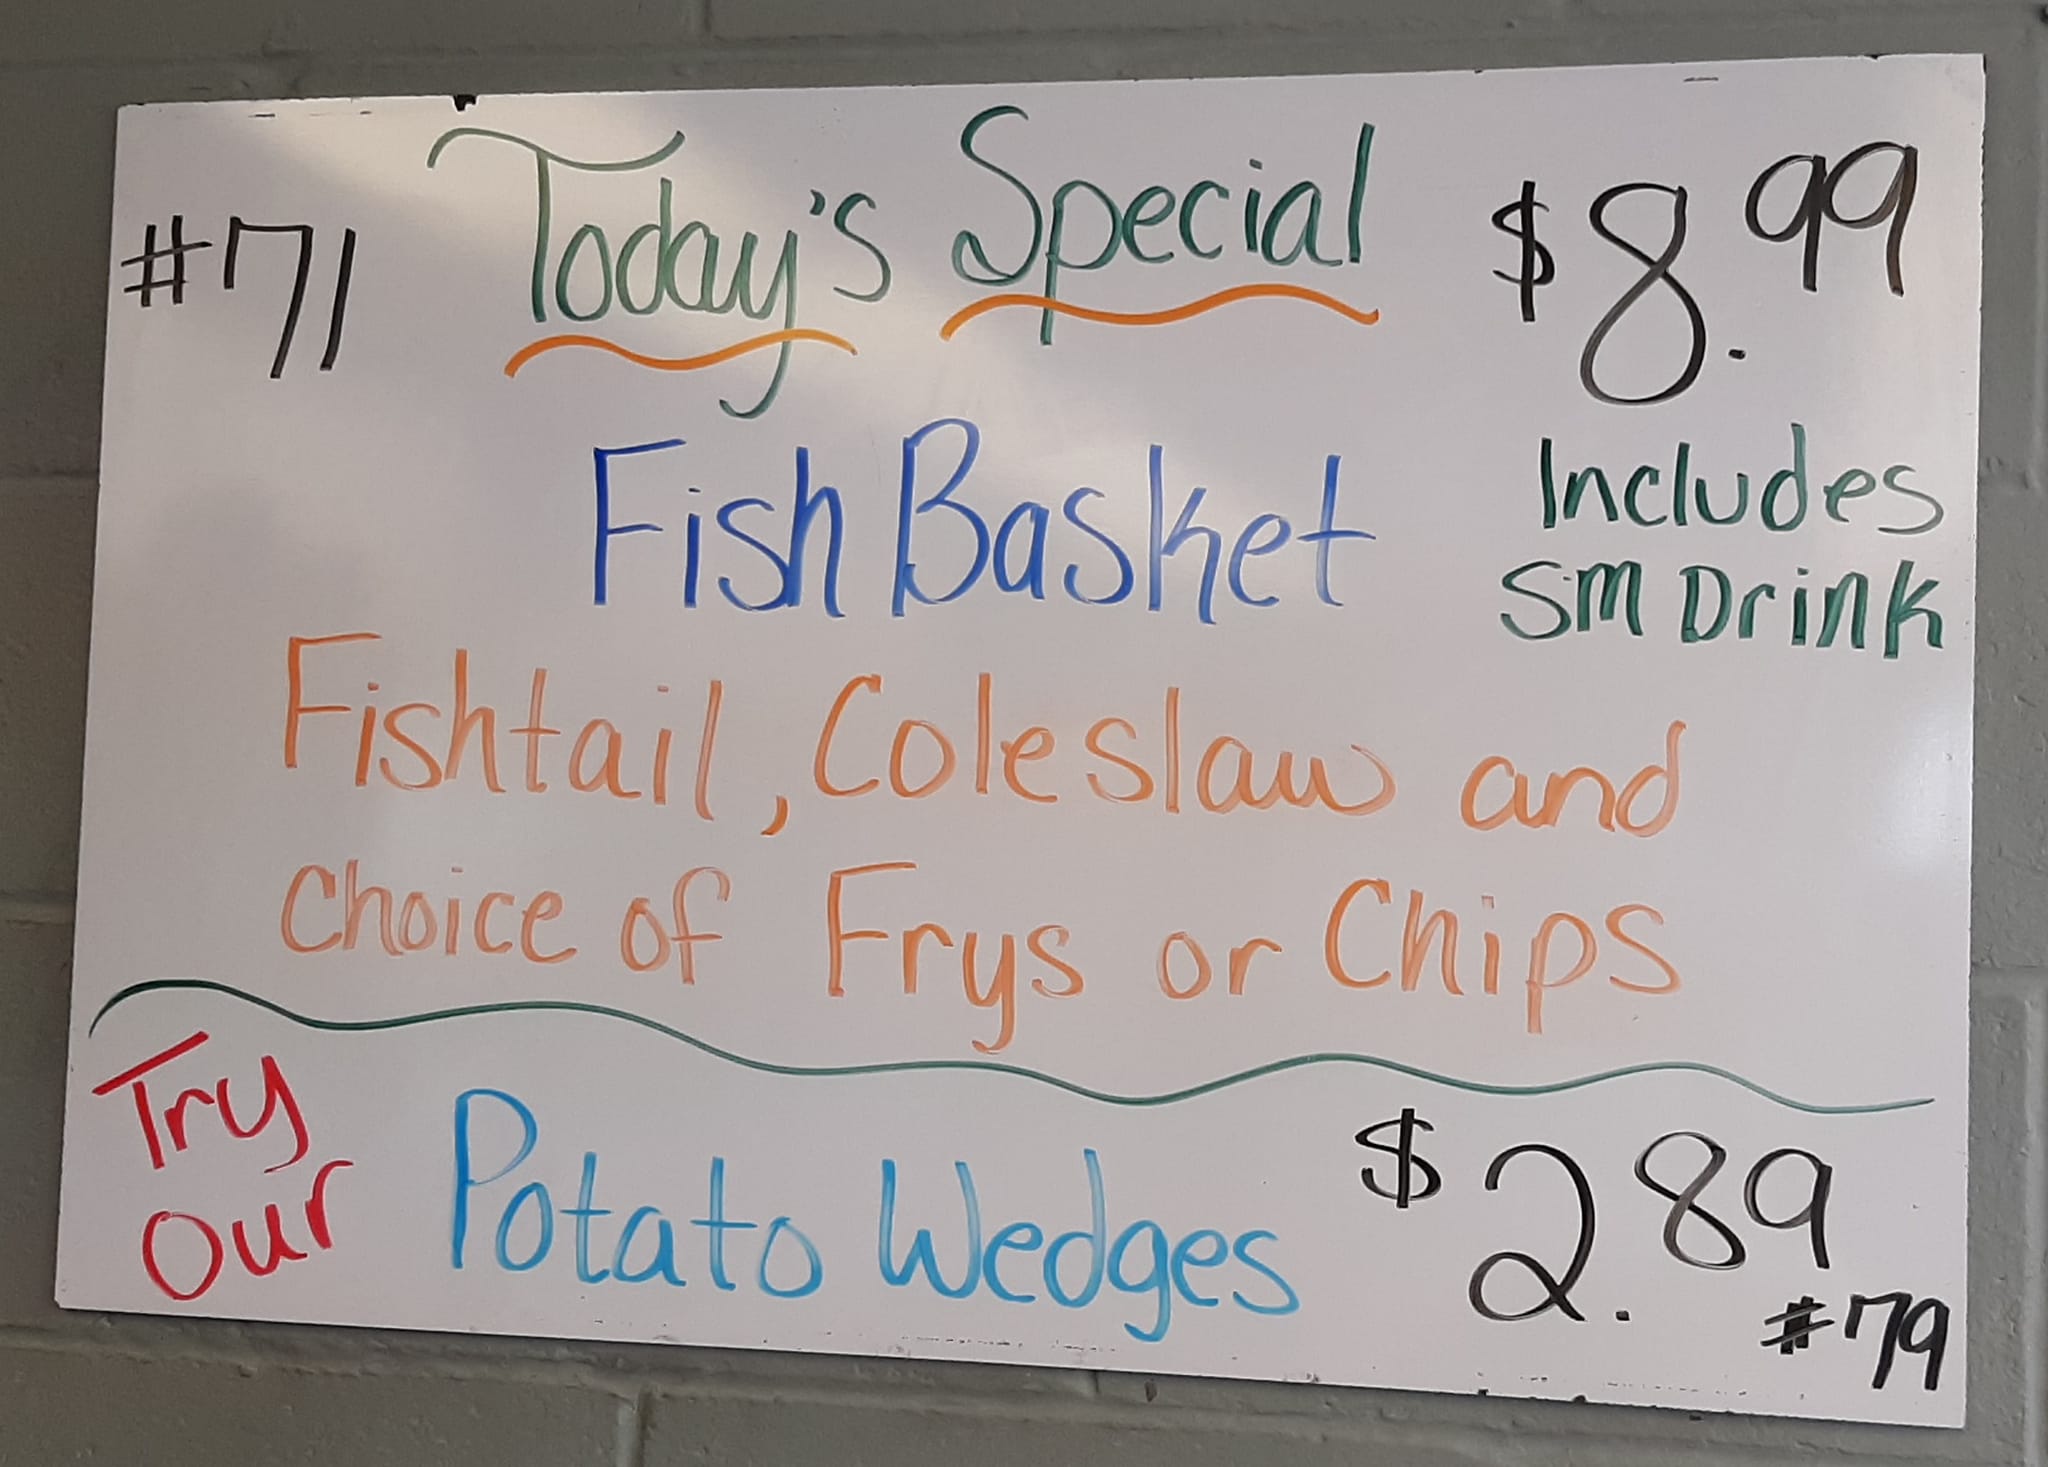 #71 Today's Special $8.99
Fish Basket
Includes
SM Drink
Fishtail, Coleslaw and
Choice of Frys or Chips
Try
Our
Potato Wedges $2.89
#79